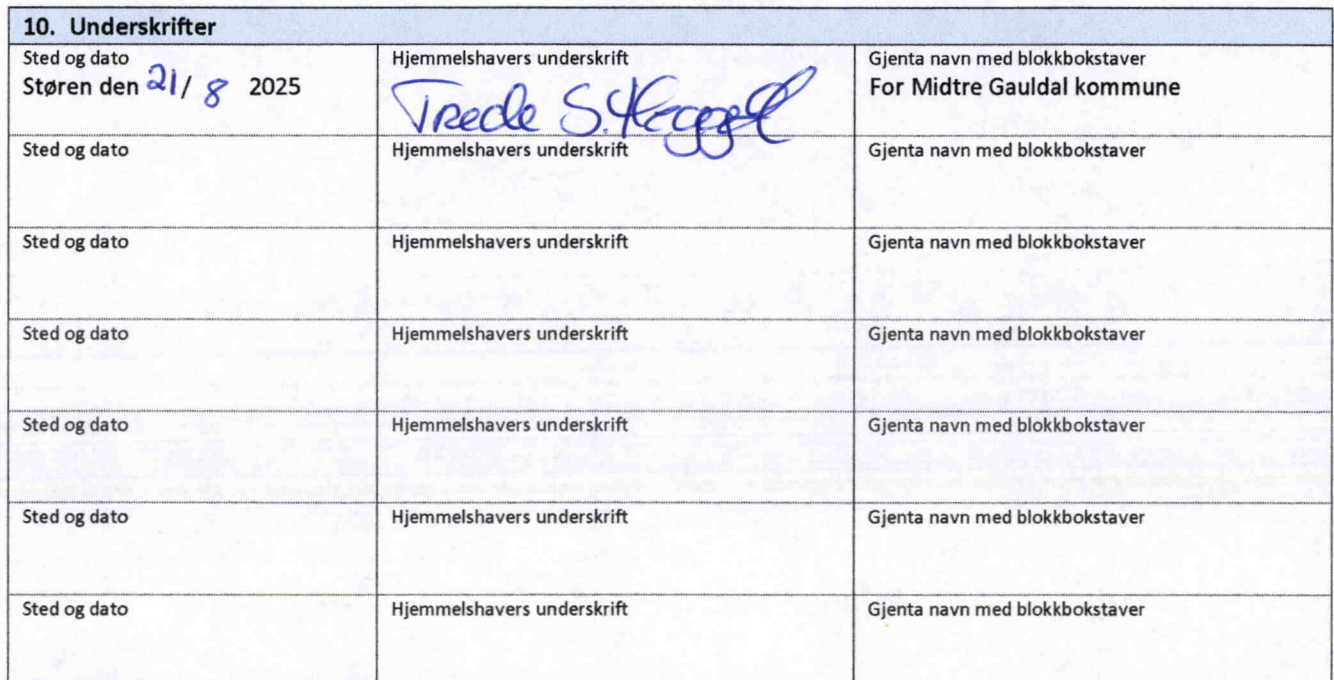 10. Underskrifter
Sted og dato
Støren den 21/8 2025
Hjemmelshavers underskrift
S.
Gjenta navn med blokkbokstaver
For Midtre Gauldal kommune
Sted og dato
Hjemmelshavers underskrift
Gjenta navn med blokkbokstaver
Sted og dato
Hjemmelshavers underskrift
Gjenta navn med blokkbokstaver
Sted og dato
Hjemmelshavers underskrift
Gjenta navn med blokkbokstaver
Sted og dato
Hjemmelshavers underskrift
Gjenta navn med blokkbokstaver
Sted og dato
Hjemmelshavers underskrift
Gjenta navn med blokkbokstaver
Sted og dato
Hjemmelshavers underskrift
Gjenta navn med blokkbokstaver